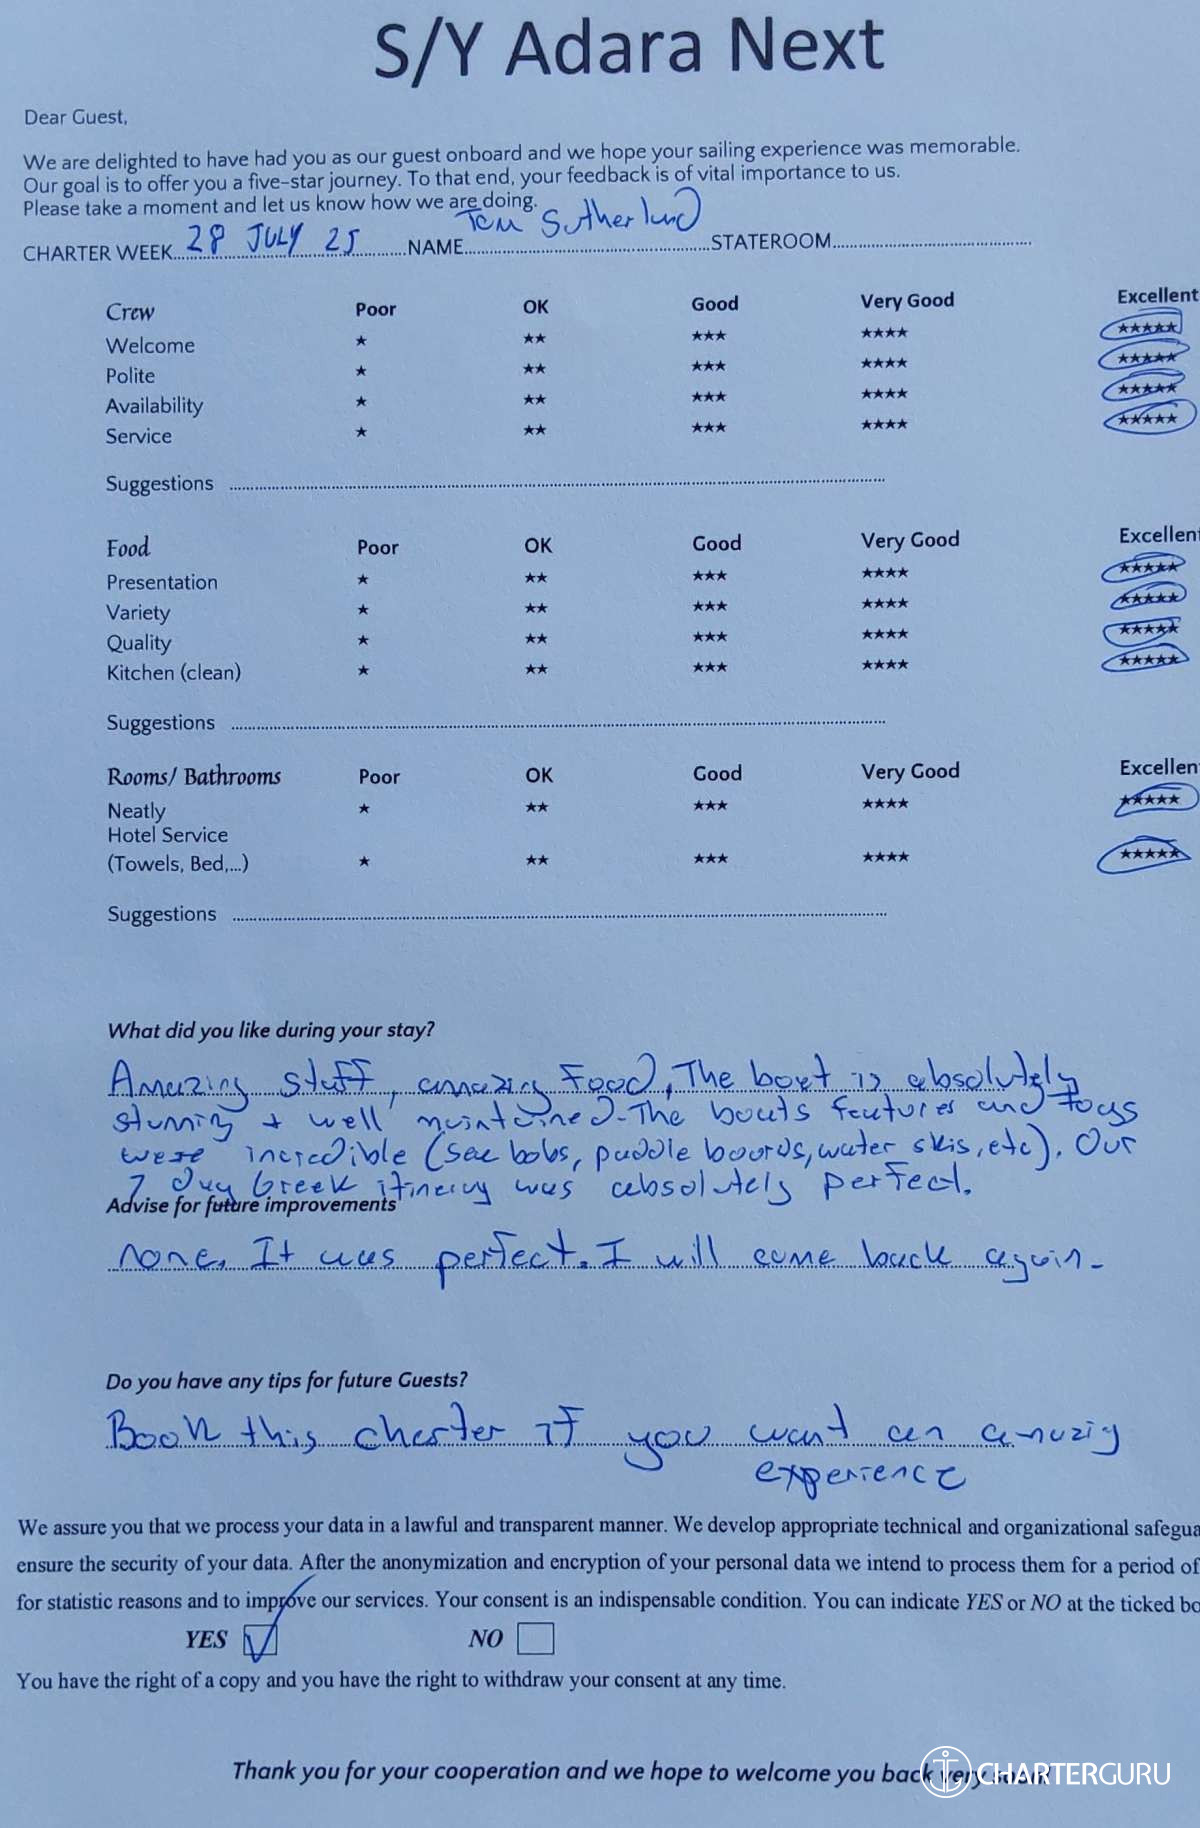 S/Y Adara Next
Dear Guest,
We are delighted to have had you as our guest onboard and we hope your sailing experience was memorable.
Our goal is to offer you a five-star journey. To that end, your feedback is of vital importance to us.
Please take a moment and let us know how we are doing.
CHARTER WEEK 28 JULY 25 NAME Tom Sutherland STATEROOM
Crew Poor OK Good Very Good Excellent
Welcome ★ ★★ ★★★ ★★★★ ★★★★★
Polite ★ ★★ ★★★ ★★★★ ★★★★★
Availability ★ ★★ ★★★ ★★★★ ★★★★★
Service ★ ★★ ★★★ ★★★★ ★★★★★
Suggestions
Food Poor OK Good Very Good Excellent
Presentation ★ ★★ ★★★ ★★★★ ★★★★★
Variety ★ ★★ ★★★ ★★★★ ★★★★★
Quality ★ ★★ ★★★ ★★★★ ★★★★★
Kitchen (clean) ★ ★★ ★★★ ★★★★ ★★★★★
Suggestions
Rooms/ Bathrooms Poor OK Good Very Good Excellen
Neatly ★ ★★ ★★★ ★★★★ ★★★★★
Hotel Service
(Towels, Bed,...) ★ ★★ ★★★ ★★★★ ★★★★★
Suggestions
What did you like during your stay?
Amazing staff, amazing food, The boat is absolutely
stunning + well maintained. The boats features and toys
were incredible (sea bobs, paddle boards, water skis, etc). Our
7 day Greek itinerary was absolutely perfect.
Advise for future improvements
none. It was perfect. I will come back again.
Do you have any tips for future Guests?
Book this charter if you want an amazing
experience
We assure you that we process your data in a lawful and transparent manner. We develop appropriate technical and organizational safegua
ensure the security of your data. After the anonymization and encryption of your personal data we intend to process them for a period of
for statistic reasons and to improve our services. Your consent is an indispensable condition. You can indicate YES or NO at the ticked bo
YES NO
You have the right of a copy and you have the right to withdraw your consent at any time.
Thank you for your cooperation and we hope to welcome you back very
CHARTERGURU